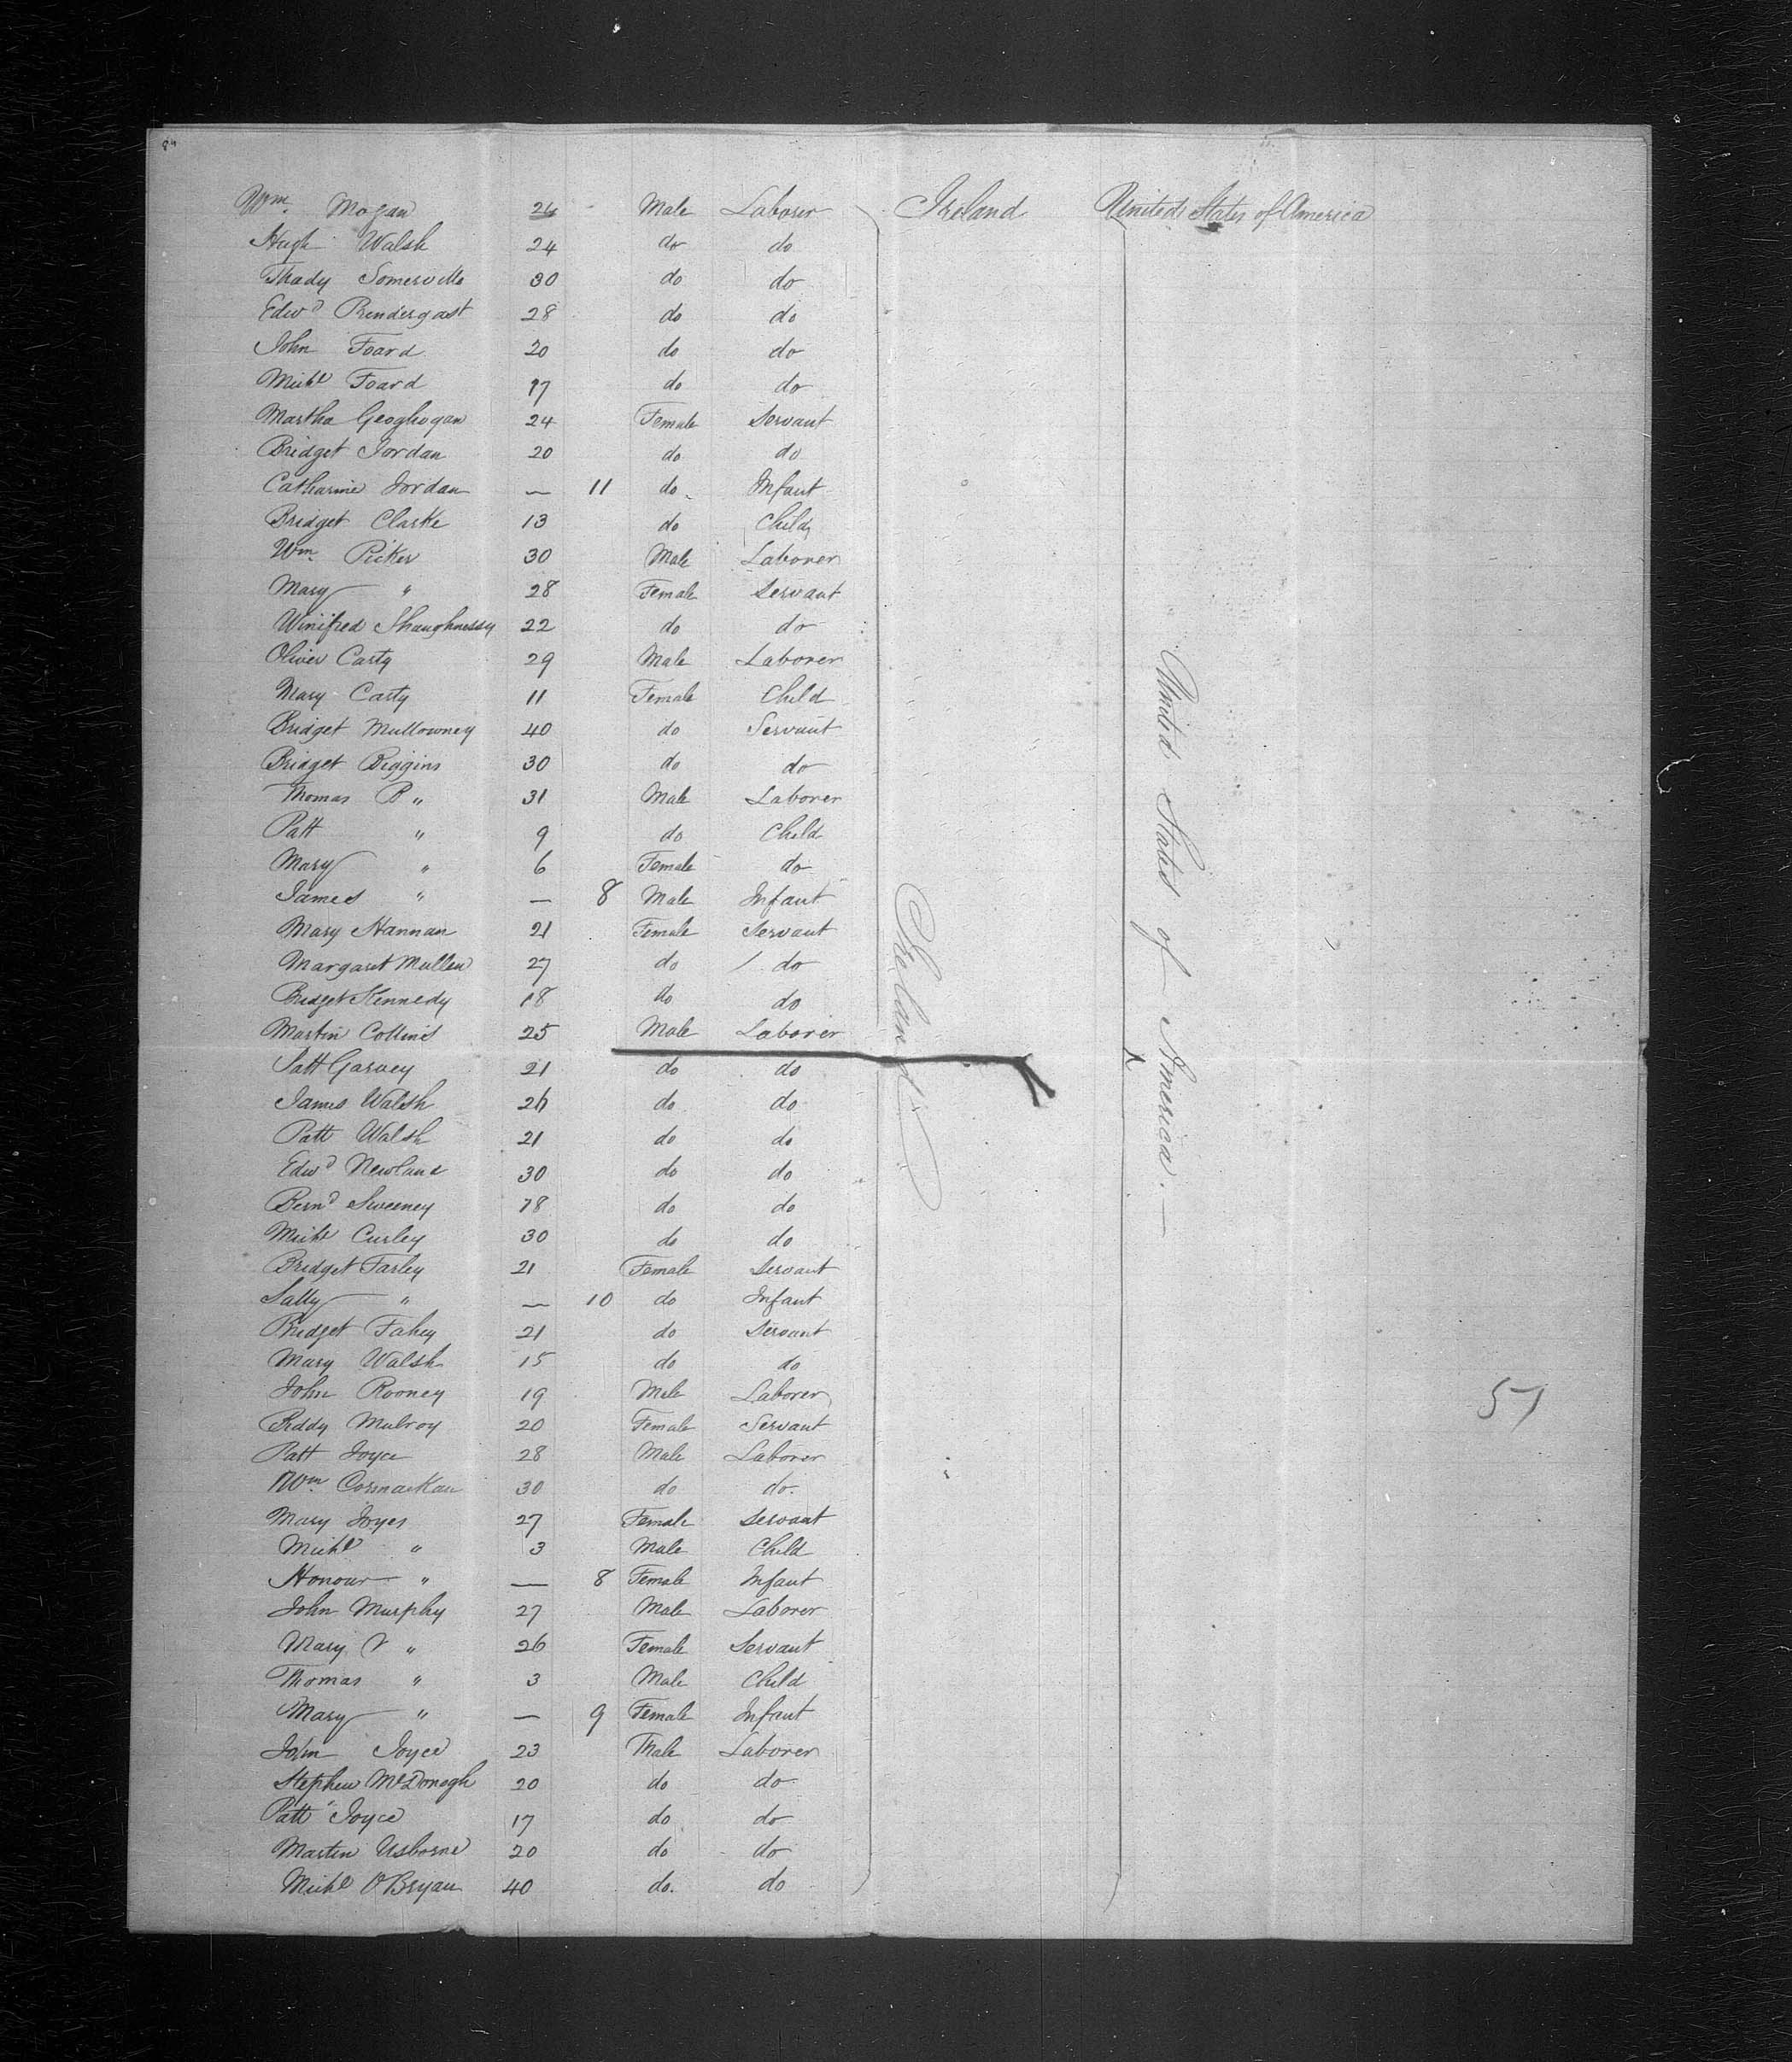 Wm. Mogan 26 Male Laborer Ireland United States of America
Hugh Walsh 24 do do
Thady Somerville 30 do do
Edwd Prendergast 28 do do
John Foard 20 do do
Michl Foard 17 do do
Martha Geoghegan 24 Female Servant
Bridget Jordan 20 do do
Catharine Jordan — 11 do Infant
Bridget Clarke 13 do Child
Wm Picker 30 Male Laborer
Mary " 28 Female Servant
Winifred Shaughnessy 22 do do
Oliver Carty 29 Male Laborer
Mary Carty 11 Female Child
Bridget Mullowney 40 do Servant
Bridget Biggins 30 do do
Thomas B " 31 Male Laborer
Patt " 9 do Child
Mary " 6 Female do
James " — 8 Male Infant
Mary Hannan 21 Female Servant
Margaret Mullen 27 do do
Bridget Kennedy 18 do do
Martin Collins 25 Male Laborer
Patt Garvey 21 do do
James Walsh 26 do do
Patt Walsh 21 do do
Edwd Newland 30 do do
Bernd Sweeney 18 do do
Michl Curley 30 do do
Bridget Farley 21 Female Servant
Sally " — 10 do Infant
Bridget Fahey 21 do Servant
Mary Walsh 15 do do
John Rooney 19 Male Laborer
Biddy Mulroy 20 Female Servant
Patt Joyce 28 Male Laborer
Wm. Cormackan 30 do do.
Mary Joyes 27 Female Servant
Michl " 3 Male Child
Honour " — 8 Female Infant
John Murphy 27 Male Laborer
Mary " 26 Female Servant
Thomas " 3 Male Child
Mary " — 9 Female Infant
John Joyce 23 Male Laborer
Stephen McDonogh 20 do do
Patt Joyce 17 do do
Martin Usborne 20 do do
Michl O'Bryan 40 do. do
Ireland
United States of America. —
51